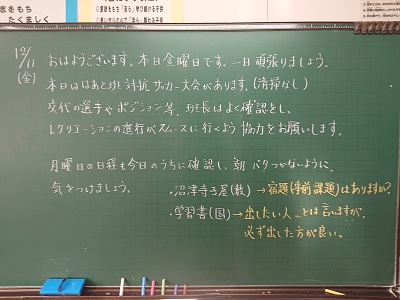 志をもち
たくましく
12/11
(金)
おはようございます。本日金曜日です。一日頑張りましょう。
本日ははあとりぼ対抗サッカー大会があります。(清掃なし)
交代の選手やポジション等、班長はよく確認をし、
レクリエーションの進行がスムーズに行くよう協力をお願いします。
月曜日の日程も今日のうちに確認し、朝バタつかないように、
気をつけましょう。
・沼津寺子屋(数)→宿題(事前課題)はありますか?
・学習書(国)→出したい人…とは言いますが、
必ず出した方が良い。